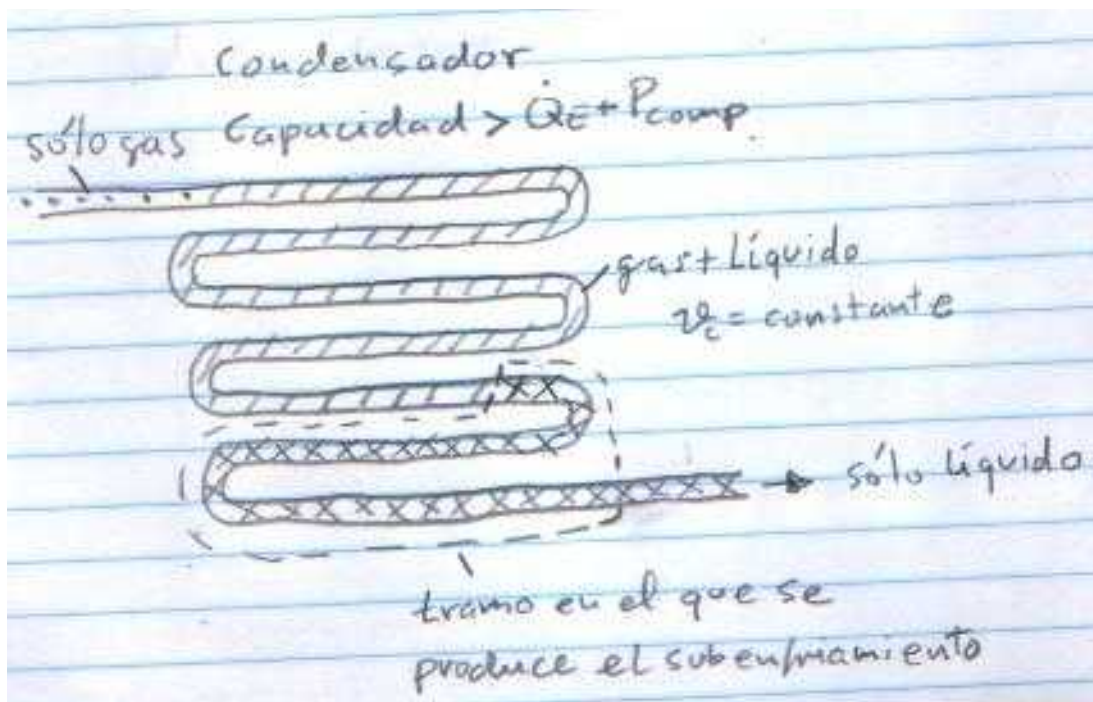 Condensador
sólo gas Capacidad > Q̇E + Pcomp
gas + Líquido
ϑc = constante
sólo líquido
tramo en el que se
produce el subenfriamiento